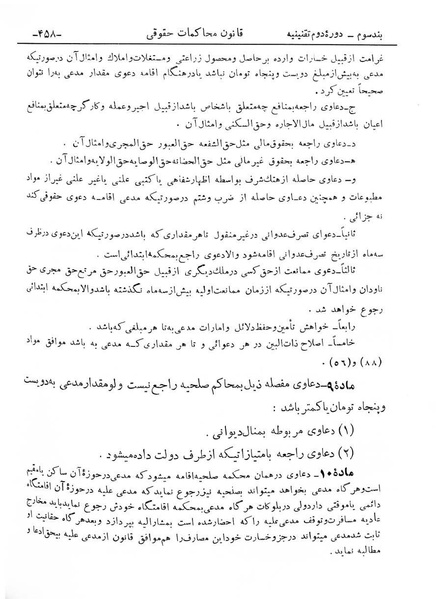 بندسوم – دورهٔ دوم تقنینیه قانون محاکمات حقوقی –۴۵۸–
غرامت از قبیل خسارات وارده بر حاصل و محصول زراعتی و مستغلات و املاک و امثال آن درصورتیکه
مدعی به بیش از مبلغ دویست و پنجاه تومان نباشد یا درهنگام اقامه دعوی مقدار مدعی به را نتوان
صحیحاً تعیین کرد.
ج– دعاوی راجعه بمنافع چه متعلق باشخاص باشد از قبیل اجیر و عمله و کارگر چه متعلق بمنافع
اعیان باشد از قبیل مال الاجاره و حق السکنی و امثال آن.
د– دعاوی راجعه بحقوق مالی مثل حق الشفعه حق العبور حق المجری و امثال آن.
ه– دعاوی راجعه بحقوق غیر مالی مثل حق الحضانه حق الوصایه حق الولایه و امثال آن.
و– دعاوی حاصله از هتک شرف بواسطه اظهار شفاهی یا کتبی علنی یا غیر علنی غیر از مواد
مطبوعات و همچنین دعاوی حاصله از ضرب و شتم درصورتیکه مدعی اقامه دعوی حقوقی کند
نه جزائی.
ثانیاً– دعوای تصرف عدوانی در غیر منقول تا هر مقداری که باشد درصورتیکه این دعوی در ظرف
سه ماه از تاریخ تصرف عدوانی اقامه شود والا دعوی راجع بمحکمه ابتدائی است.
ثالثاً– دعاوی ممانعت از حق کسی در ملک دیگری از قبیل حق العبور حق مرتع حق مجری حق
ناودان و امثال آن درصورتیکه از زمان ممانعت اولیه بیش از سه ماه نگذشته باشد والا بمحکمه ابتدائی
رجوع خواهد شد.
رابعاً– خواهش تأمین و حفظ دلائل و امارات مدعی به تا هر مبلغی که باشد.
خامساً– اصلاح ذات البین در هر دعوائی و تا هر مقداری که مدعی به باشد موافق مواد
(۸۸) و (۵۶).
مادهٔ ۹– دعاوی مفصله ذیل بمحاکم صلحیه راجع نیست ولو مقدار مدعی به دویست
و پنجاه تومان یا کمتر باشد:
(۱) دعاوی مربوطه بمنال دیوانی.
(۲) دعاوی راجعه بامتیازاتیکه از طرف دولت داده میشود.
مادهٔ ۱۰– دعاوی در همان محکمه صلحیه اقامه میشود که مدعی در حوزهٔ آن ساکن یا مقیم
است و هر گاه مدعی بخواهد میتواند بصلحیه نیز رجوع نماید که مدعی علیه در حوزهٔ آن اقامتگاه
دائمی یا موقتی دارد ولی در بلوکات هر گاه مدعی بمحکمه اقامتگاه خودش رجوع نماید باید مخارج
تأدیه مسافرت و توقف مدعی علیه را که احضار شده است بمشارالیه بپردازد و بعد هر گاه حقانیت او
ثابت شد مدعی میتواند در جزو خسارت خود این مصارف را هم موافق قانون از مدعی علیه بیحق ادعا و
مطالبه نماید.